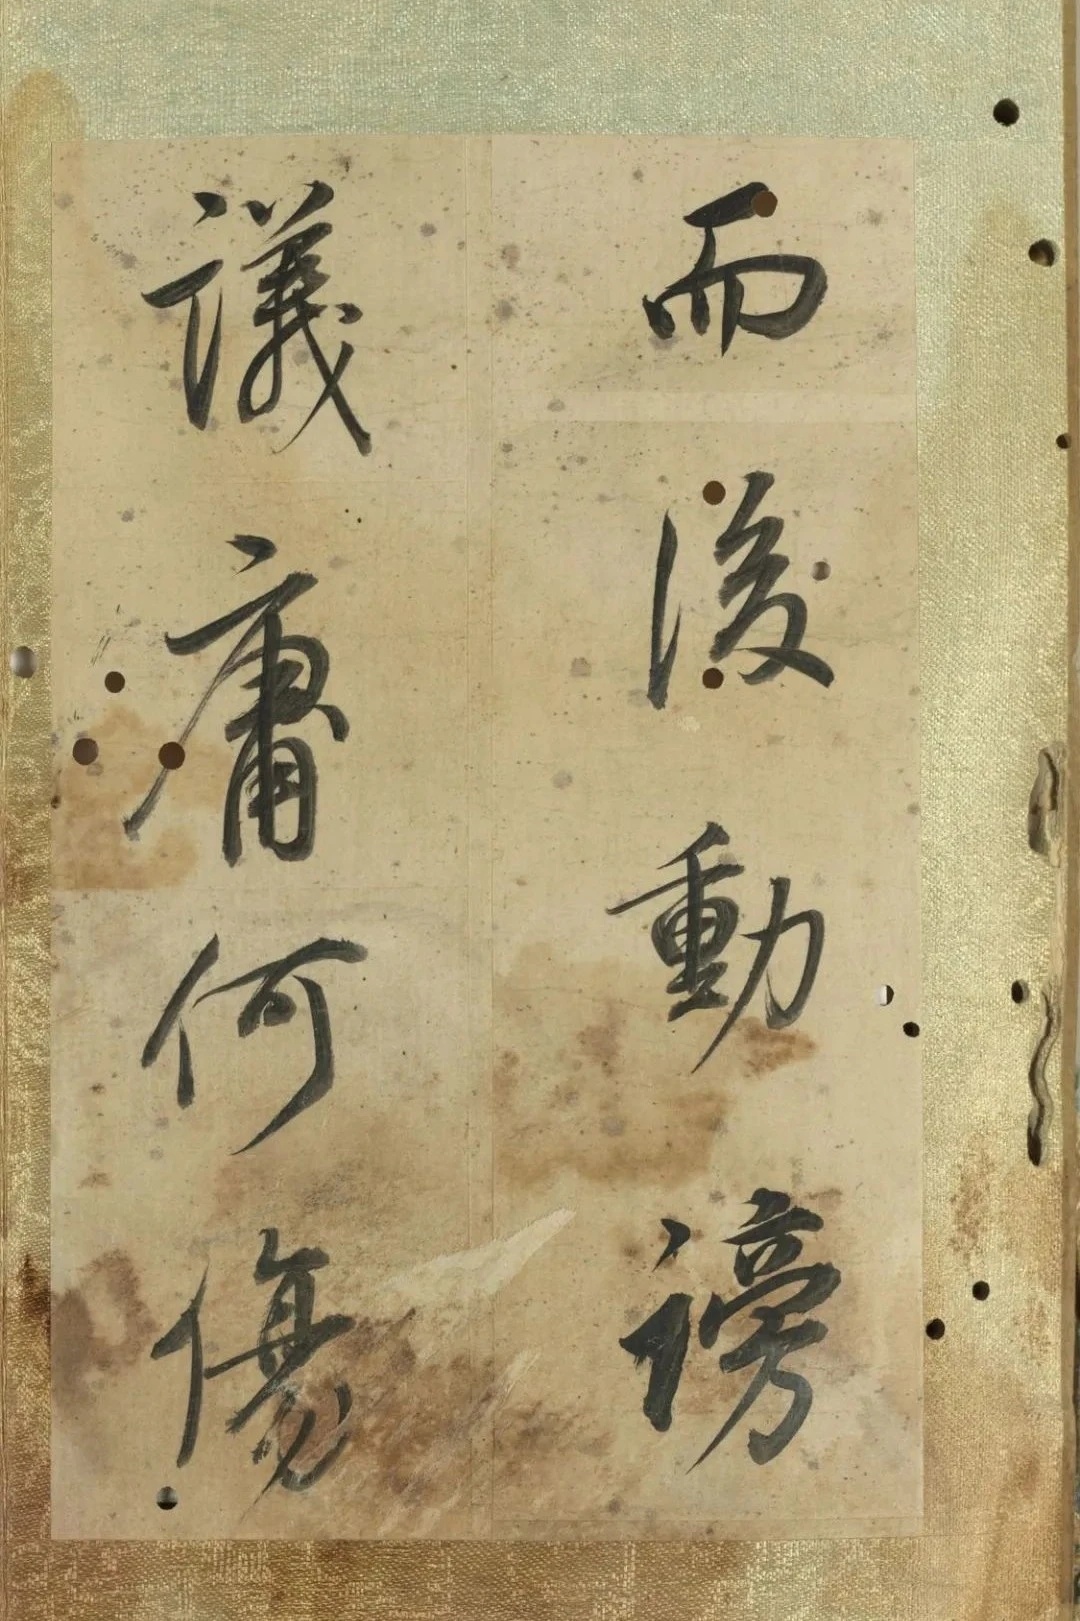 而後動謗
議庸何傷